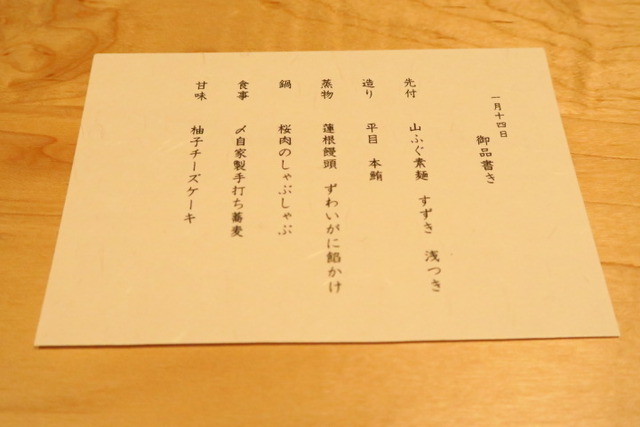 一月十四日
御品書き
先付 山ふぐ素麺 すずき 浅つき
造り 平目 本鮪
蒸物 蓮根饅頭 ずわいがに餡かけ
鍋 桜肉のしゃぶしゃぶ
食事 〆自家製手打ち蕎麦
甘味 柚子チーズケーキ